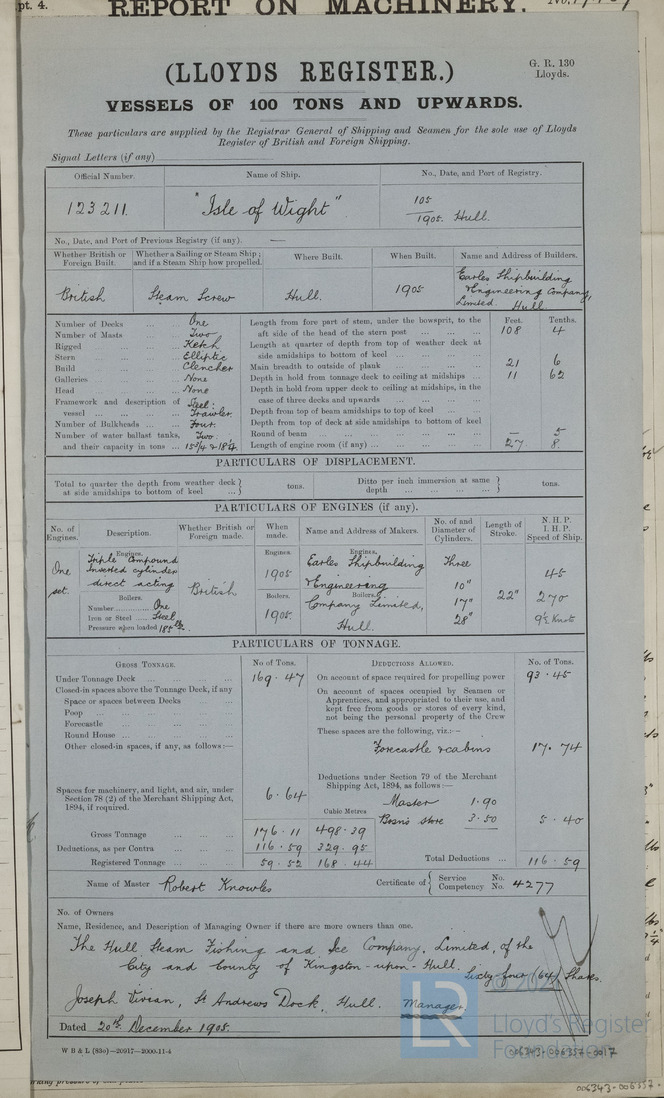 pt. 4.
REPORT ON MACHINERY.
(LLOYDS REGISTER.)
G. R. 130
Lloyds.
VESSELS OF 100 TONS AND UPWARDS.
These particulars are supplied by the Registrar General of Shipping and Seamen for the sole use of Lloyds
Register of British and Foreign Shipping.
Signal Letters (if any)
Official Number. Name of Ship. No., Date, and Port of Registry.
123211. "Isle of Wight". 105
1905 Hull.
No., Date, and Port of Previous Registry (if any). —
Whether British or Foreign Built. Whether a Sailing or Steam Ship; and if a Steam Ship how propelled. Where Built. When Built. Name and Address of Builders.
British Steam Screw Hull. 1905 Earles Shipbuilding
& Engineering Company,
Limited. Hull
Number of Decks ... One
Number of Masts ... Two
Rigged ... Ketch
Stern ... Elliptic
Build ... Clencher
Galleries ... None
Head ... None
Framework and description of vessel ... Steel: Trawler.
Number of Bulkheads ... Four.
Number of water ballast tanks, and their capacity in tons ... Two. 15 3/4 & 18 1/4
Feet. Tenths.
Length from fore part of stem, under the bowsprit, to the aft side of the head of the stern post ... 108 4
Length at quarter of depth from top of weather deck at side amidships to bottom of keel ...
Main breadth to outside of plank ... 21 6
Depth in hold from tonnage deck to ceiling at midships ... 11 62
Depth in hold from upper deck to ceiling at midships, in the case of three decks and upwards ...
Depth from top of beam amidships to top of keel ...
Depth from top of deck at side amidships to bottom of keel
Round of beam ... — 5
Length of engine room (if any) ... 27 8
PARTICULARS OF DISPLACEMENT.
Total to quarter the depth from weather deck at side amidships to bottom of keel ... tons. Ditto per inch immersion at same depth ... tons.
PARTICULARS OF ENGINES (if any).
No. of Engines. Description. Whether British or Foreign made. When made. Name and Address of Makers. No. of and Diameter of Cylinders. Length of Stroke. N.H.P. I.H.P. Speed of Ship.
One set.
Engines.
Triple Compound
Inverted cylinder
direct acting
Boilers.
Number ... One
Iron or Steel ... Steel
Pressure when loaded 185 lbs.
British
Engines.
1905
Boilers.
1905.
Engines.
Earles Shipbuilding
& Engineering
Boilers.
Company Limited,
Hull.
Three
10"
17"
28"
22"
45
270
9½ Knots
PARTICULARS OF TONNAGE.
GROSS TONNAGE. No of Tons. DEDUCTIONS ALLOWED. No. of Tons.
Under Tonnage Deck ... 169.47
Closed-in spaces above the Tonnage Deck, if any
Space or spaces between Decks ...
Poop ...
Forecastle ...
Round House ...
Other closed-in spaces, if any, as follows:—
Spaces for machinery, and light, and air, under Section 78 (2) of the Merchant Shipping Act, 1894, if required. 6.64
Cubic Metres
Gross Tonnage ... 176.11 498.39
Deductions, as per Contra ... 116.59 329.95
Registered Tonnage ... 59.52 168.44
On account of space required for propelling power 93.45
On account of spaces occupied by Seamen or Apprentices, and appropriated to their use, and kept free from goods or stores of every kind, not being the personal property of the Crew
These spaces are the following, viz.:—
Forecastle & cabins 17.74
Deductions under Section 79 of the Merchant Shipping Act, 1894, as follows:—
Master 1.90
Bosn's store 3.50 5.40
Total Deductions ... 116.59
Name of Master Robert Knowles Certificate of { Service No. Competency No. 4277
No. of Owners
Name, Residence, and Description of Managing Owner if there are more owners than one.
The Hull Steam Fishing and Ice Company, Limited, of the
City and County of Kingston-upon-Hull. Sixty four (64) Shares.
Joseph Vivian, St Andrews Dock, Hull. Manager.
Dated 20th December 1905.
W B & L (83o)—20917—2000-11-4
LR
Lloyd's Register
Foundation
006343-006357-0017
006343-006357-